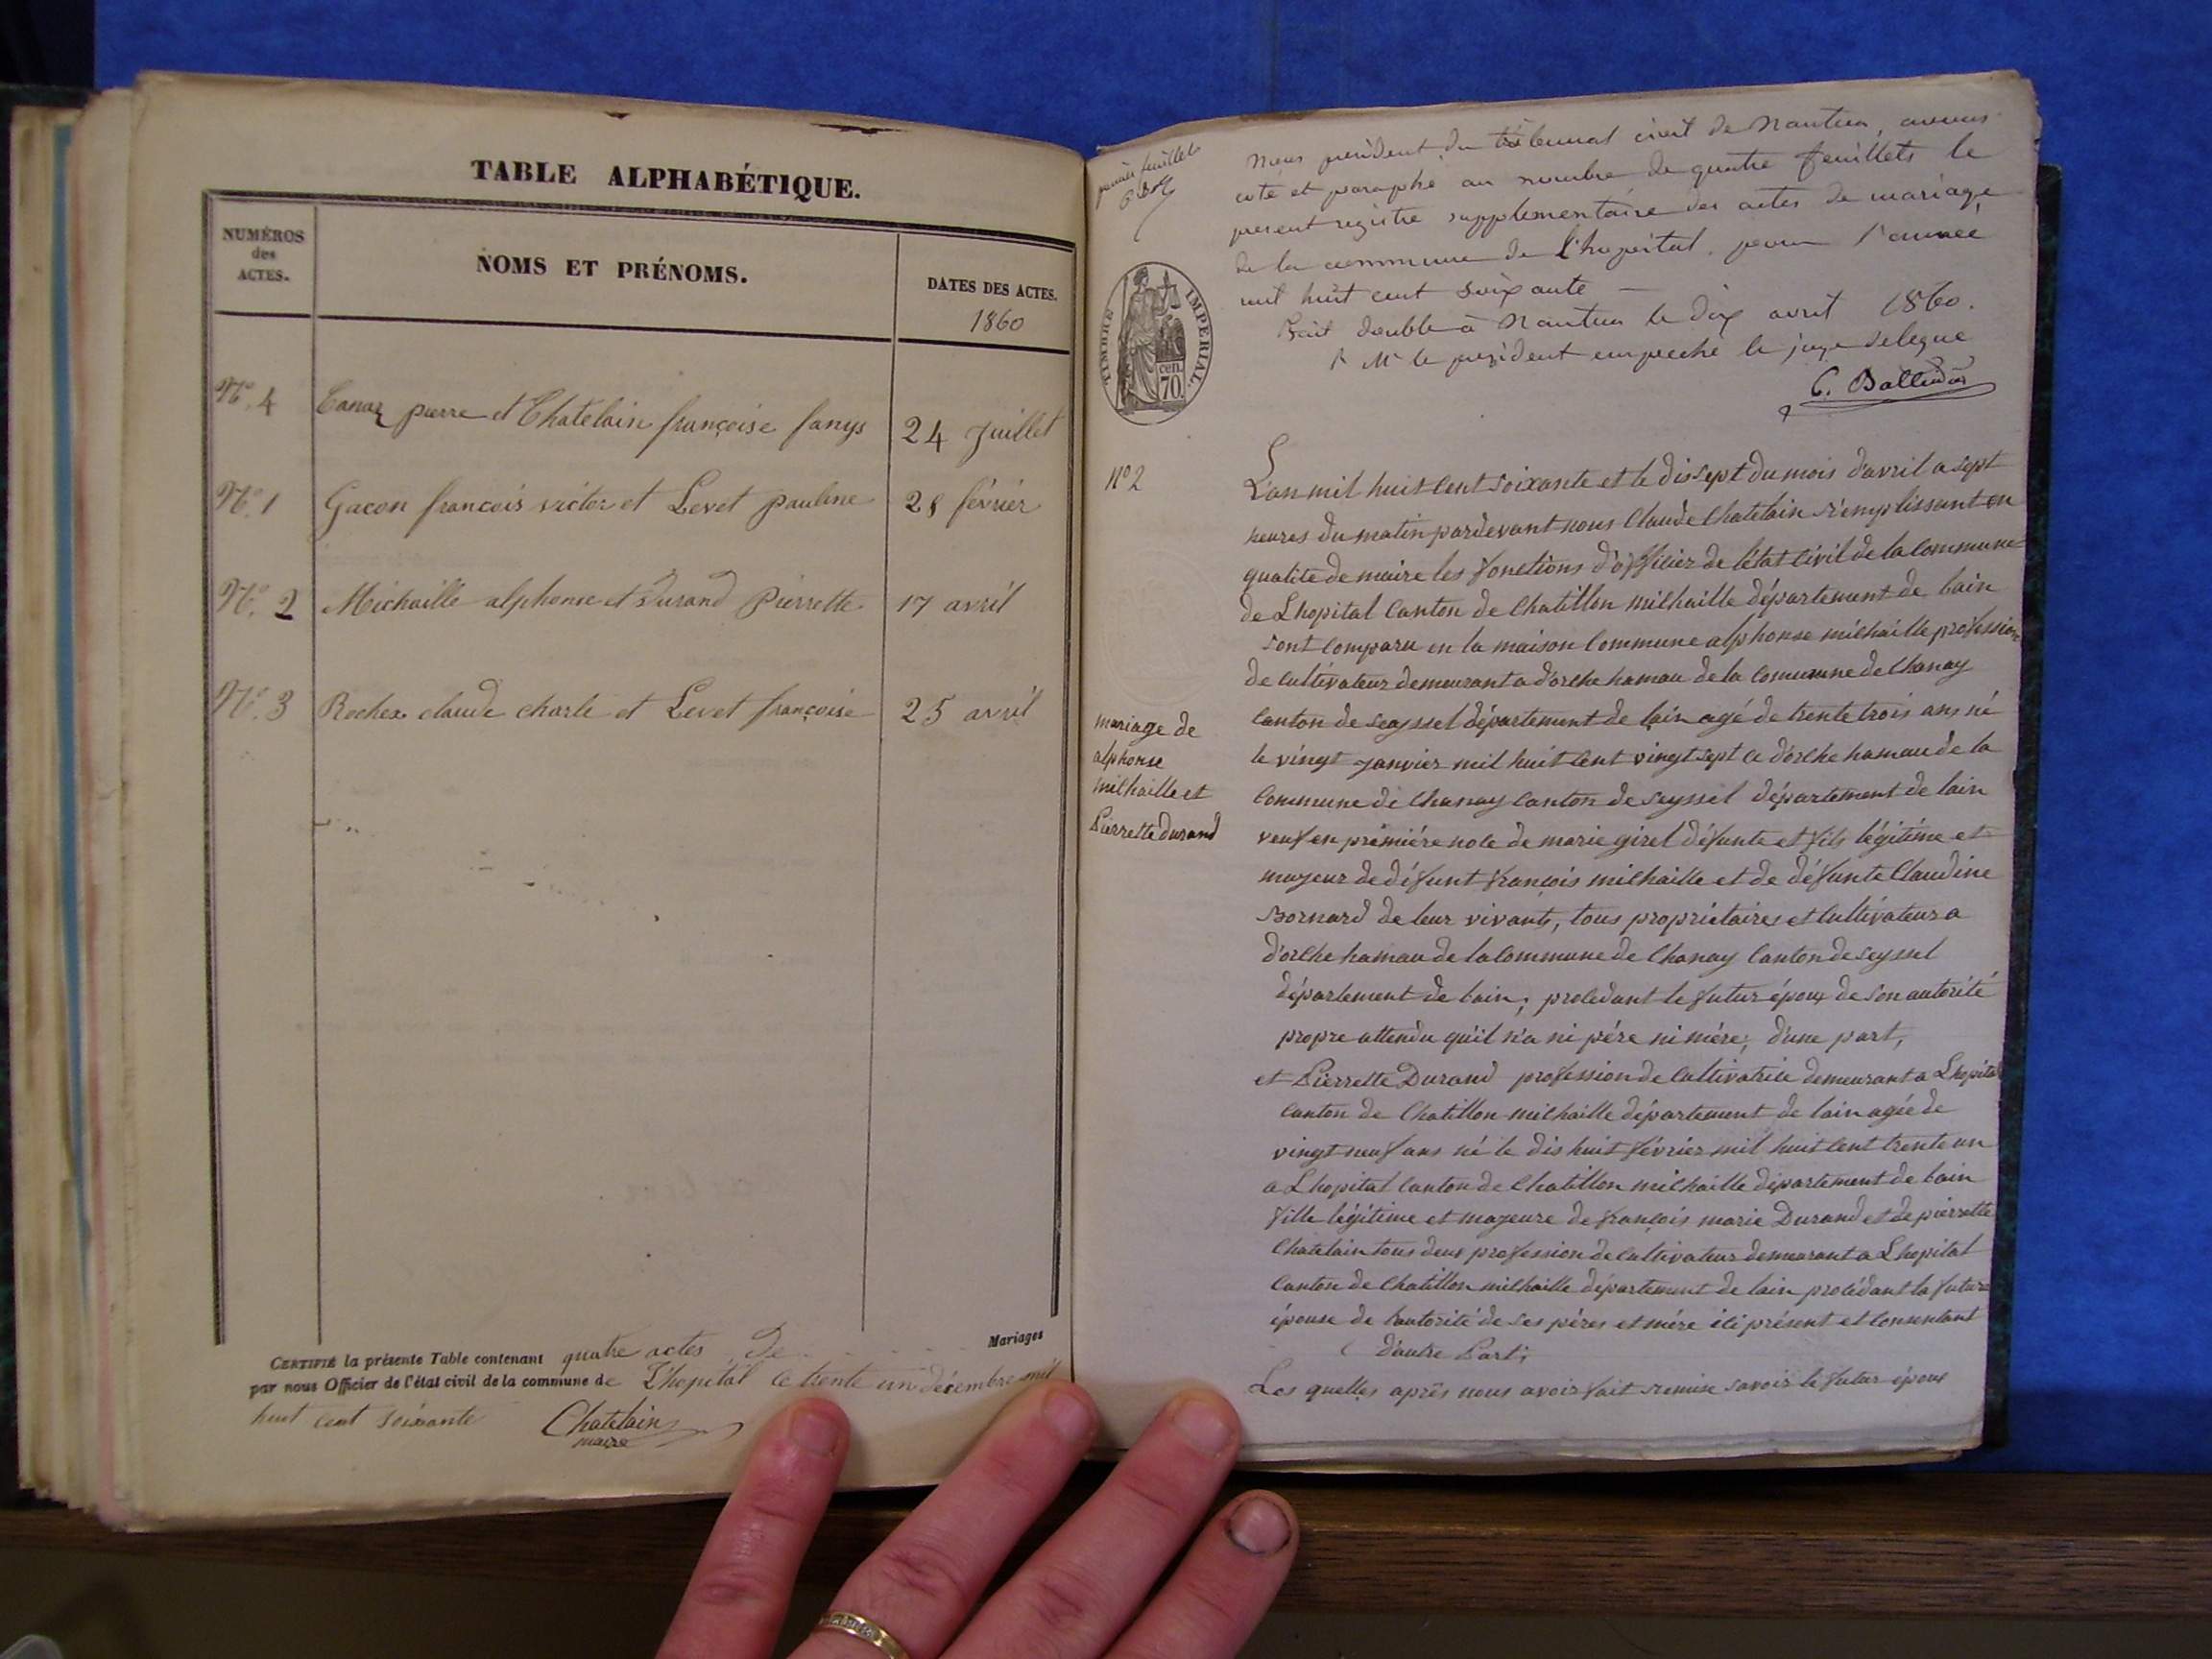 TABLE ALPHABÉTIQUE.
NUMÉROS
des
ACTES.
NOMS ET PRÉNOMS.
DATES DES ACTES.
1860
N° 4 Canaz pierre et Chatelain françoise fanys 24 Juillet
N° 1 Gacon francois victor et Levet pauline 28 février
N° 2 Michaille alphonse et Durand Pierrette 17 avril
N° 3 Rochex claude charle et Levet françoise 25 avril
CERTIFIÉ la présente Table contenant quatre actes de Mariages
par nous Officier de l'état civil de la commune de L'hopital le trente un décembre mil
huit cent soixante Chatelain
maire
premier feuillet
Nous président du tribunal civil de Nantua, avons
coté et paraphé au nombre de quatre feuillets le
present registre supplémentaire des actes de mariage
de la commune de L'hopital. pour l'année
mil huit cent soixante —
Fait double à Nantua le dix avril 1860.
P. Mr le président empeché le juge délégué
TIMBRE IMPÉRIAL.
70. cen.
N° 2
L'an mil huit cent soixante et le dissept du mois d'avril a sept
heures du matin pardevant nous Claude Chatelain remplissant en
qualite de maire les fonctions d'officier de l'état civil de la Commune
de Lhopital Canton de Chatillon michaille département de lain
sont comparu en la maison Commune alphonse michaille profession
de cultivateur demeurant a d'orche hamau de la Commune de Chanay
mariage de
alphonse
michaille et
Pierrette durand
Canton de seyssel département de lain agé de trente trois ans né
le vingt janvier mil huit cent vingt sept a d'orche hamau de la
Commune de Chanay Canton de seyssel département de lain
veuf en première noce de marie girel défunte et fils légitime et
majeur de défunt françois michaille et de défunte Claudine
Bornard de leur vivants, tous propriétaires et Cultivateur a
d'orche hamau de la Commune de Chanay Canton de seyssel
département de lain, procédant le futur époux de son autorité
propre attendu qu'il n'a ni pére ni mére, d'une part,
et Pierrette Durand profession de Cultivatrice demeurant a Lhopital
Canton de Chatillon michaille département de lain agée de
vingt neuf ans né le dis huit février mil huit cent trente un
a Lhopital Canton de Chatillon michaille département de lain
fille légitime et majeure de françois marie Durand et de pierrette
Chatelain tous deux profession de Cultivateur demeurant a Lhopital
Canton de Chatillon michaille département de lain procédant la future
épouse de l'autorité de ses péres et mére ici présent et Consentant
d'autre Part;
Les quelles aprés nous avoir fait remise savoir le futur époux